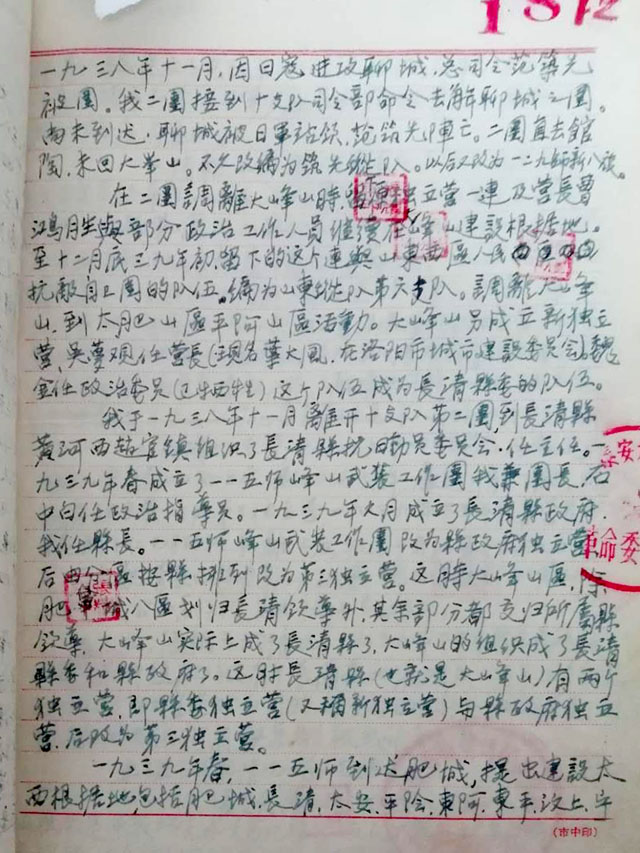 1812
一九三八年十一月，因日寇进攻聊城，总司令范築先
被圍。我二團接到十支队司令部命令去解聊城之圍。
尚未到达，聊城被日軍站领，范筑先陣亡。二團直去館
陶，未回大峯山。不久改編为筑先纵队。以后又改为一二九师新八旅。
在二團調離大峰山時，留原独立营一連及营長曹
鴻胜與部分政治工作人员继續在峰山建設根据地。
至十二月底三九年初，留下的这个連與山東西區人民
抗敵自卫團的队伍，編为山東纵队第六支队。調離大峰
山，到太肥山區平阿山區活動。大峰山另成立新独立
营，吳夢观任营長（現名葉大風，在洛阳市城市建設委員会），魏
金任政治委員（已牺牲）这个队伍成为長清縣委的队伍。
我于一九三八年十一月離开十支队第二團，到長清縣
黄河西赵官镇組织了長清縣抗日動员委员会，任主任。一
九三九年春成立了一一五师峰山武裝工作團我兼團長，石
中向任政治指導员。一九三九年 月成立了長清縣政府，
我任縣長。一一五师峰山武装工作團改为縣政府独立营
后 分區按縣排列改为第三独立营。这時大峰山區，除
肥城八區划归長清領導外，其余部分都交归所屬縣
領導，大峰山实际上成了長清縣了，大峰山的组织成了長清
縣委和縣政府了。这时長清縣（也就是大峰山）有两个
独立营，即縣委独立营（又稱新独立营）与縣政府独立
营，后改为第三独立营。
一九三九年春，一一五师到达肥城，提出建設太
西根据地包括肥城，長清，太安，平陰，東阿，東平，汶上，宁
泰安
革命委
（市中印）